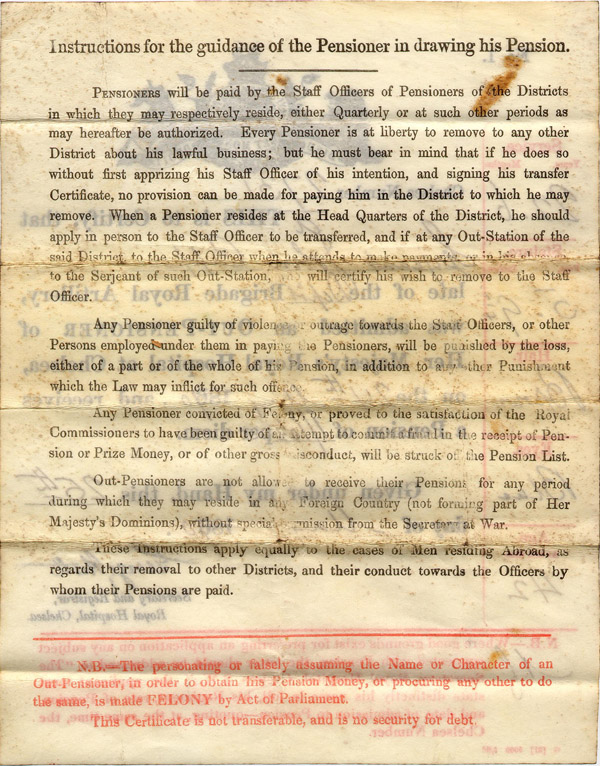 Instructions for the guidance of the Pensioner in drawing his Pension.
PENSIONERS will be paid by the Staff Officers of Pensioners of the Districts
in which they may respectively reside, either Quarterly or at such other periods as
may hereafter be authorized. Every Pensioner is at liberty to remove to any other
District about his lawful business; but he must bear in mind that if he does so
without first apprizing his Staff Officer of his intention, and signing his transfer
Certificate, no provision can be made for paying him in the District to which he may
remove. When a Pensioner resides at the Head Quarters of the District, he should
apply in person to the Staff Officer to be transferred, and if at any Out-Station of the
said District, to the Staff Officer when he attends to make payments, or in his absence
to the Serjeant of such Out-Station, who will certify his wish to remove to the Staff
Officer.
Any Pensioner guilty of violence or outrage towards the Staff Officers, or other
Persons employed under them in paying the Pensioners, will be punished by the loss,
either of a part or of the whole of his Pension, in addition to any other Punishment
which the Law may inflict for such offence.
Any Pensioner convicted of Felony, or proved to the satisfaction of the Royal
Commissioners to have been guilty of an attempt to commit a fraud in the receipt of Pen-
sion or Prize Money, or of other gross misconduct, will be struck off the Pension List.
Out-Pensioners are not allowed to receive their Pensions for any period
during which they may reside in any Foreign Country (not forming part of Her
Majesty's Dominions), without special permission from the Secretary at War.
These Instructions apply equally to the cases of Men residing Abroad, as
regards their removal to other Districts, and their conduct towards the Officers by
whom their Pensions are paid.
N.B.—The personating or falsely assuming the Name or Character of an
Out-Pensioner, in order to obtain his Pension Money, or procuring any other to do
the same, is made FELONY by Act of Parliament.
This Certificate is not transferable, and is no security for debt.